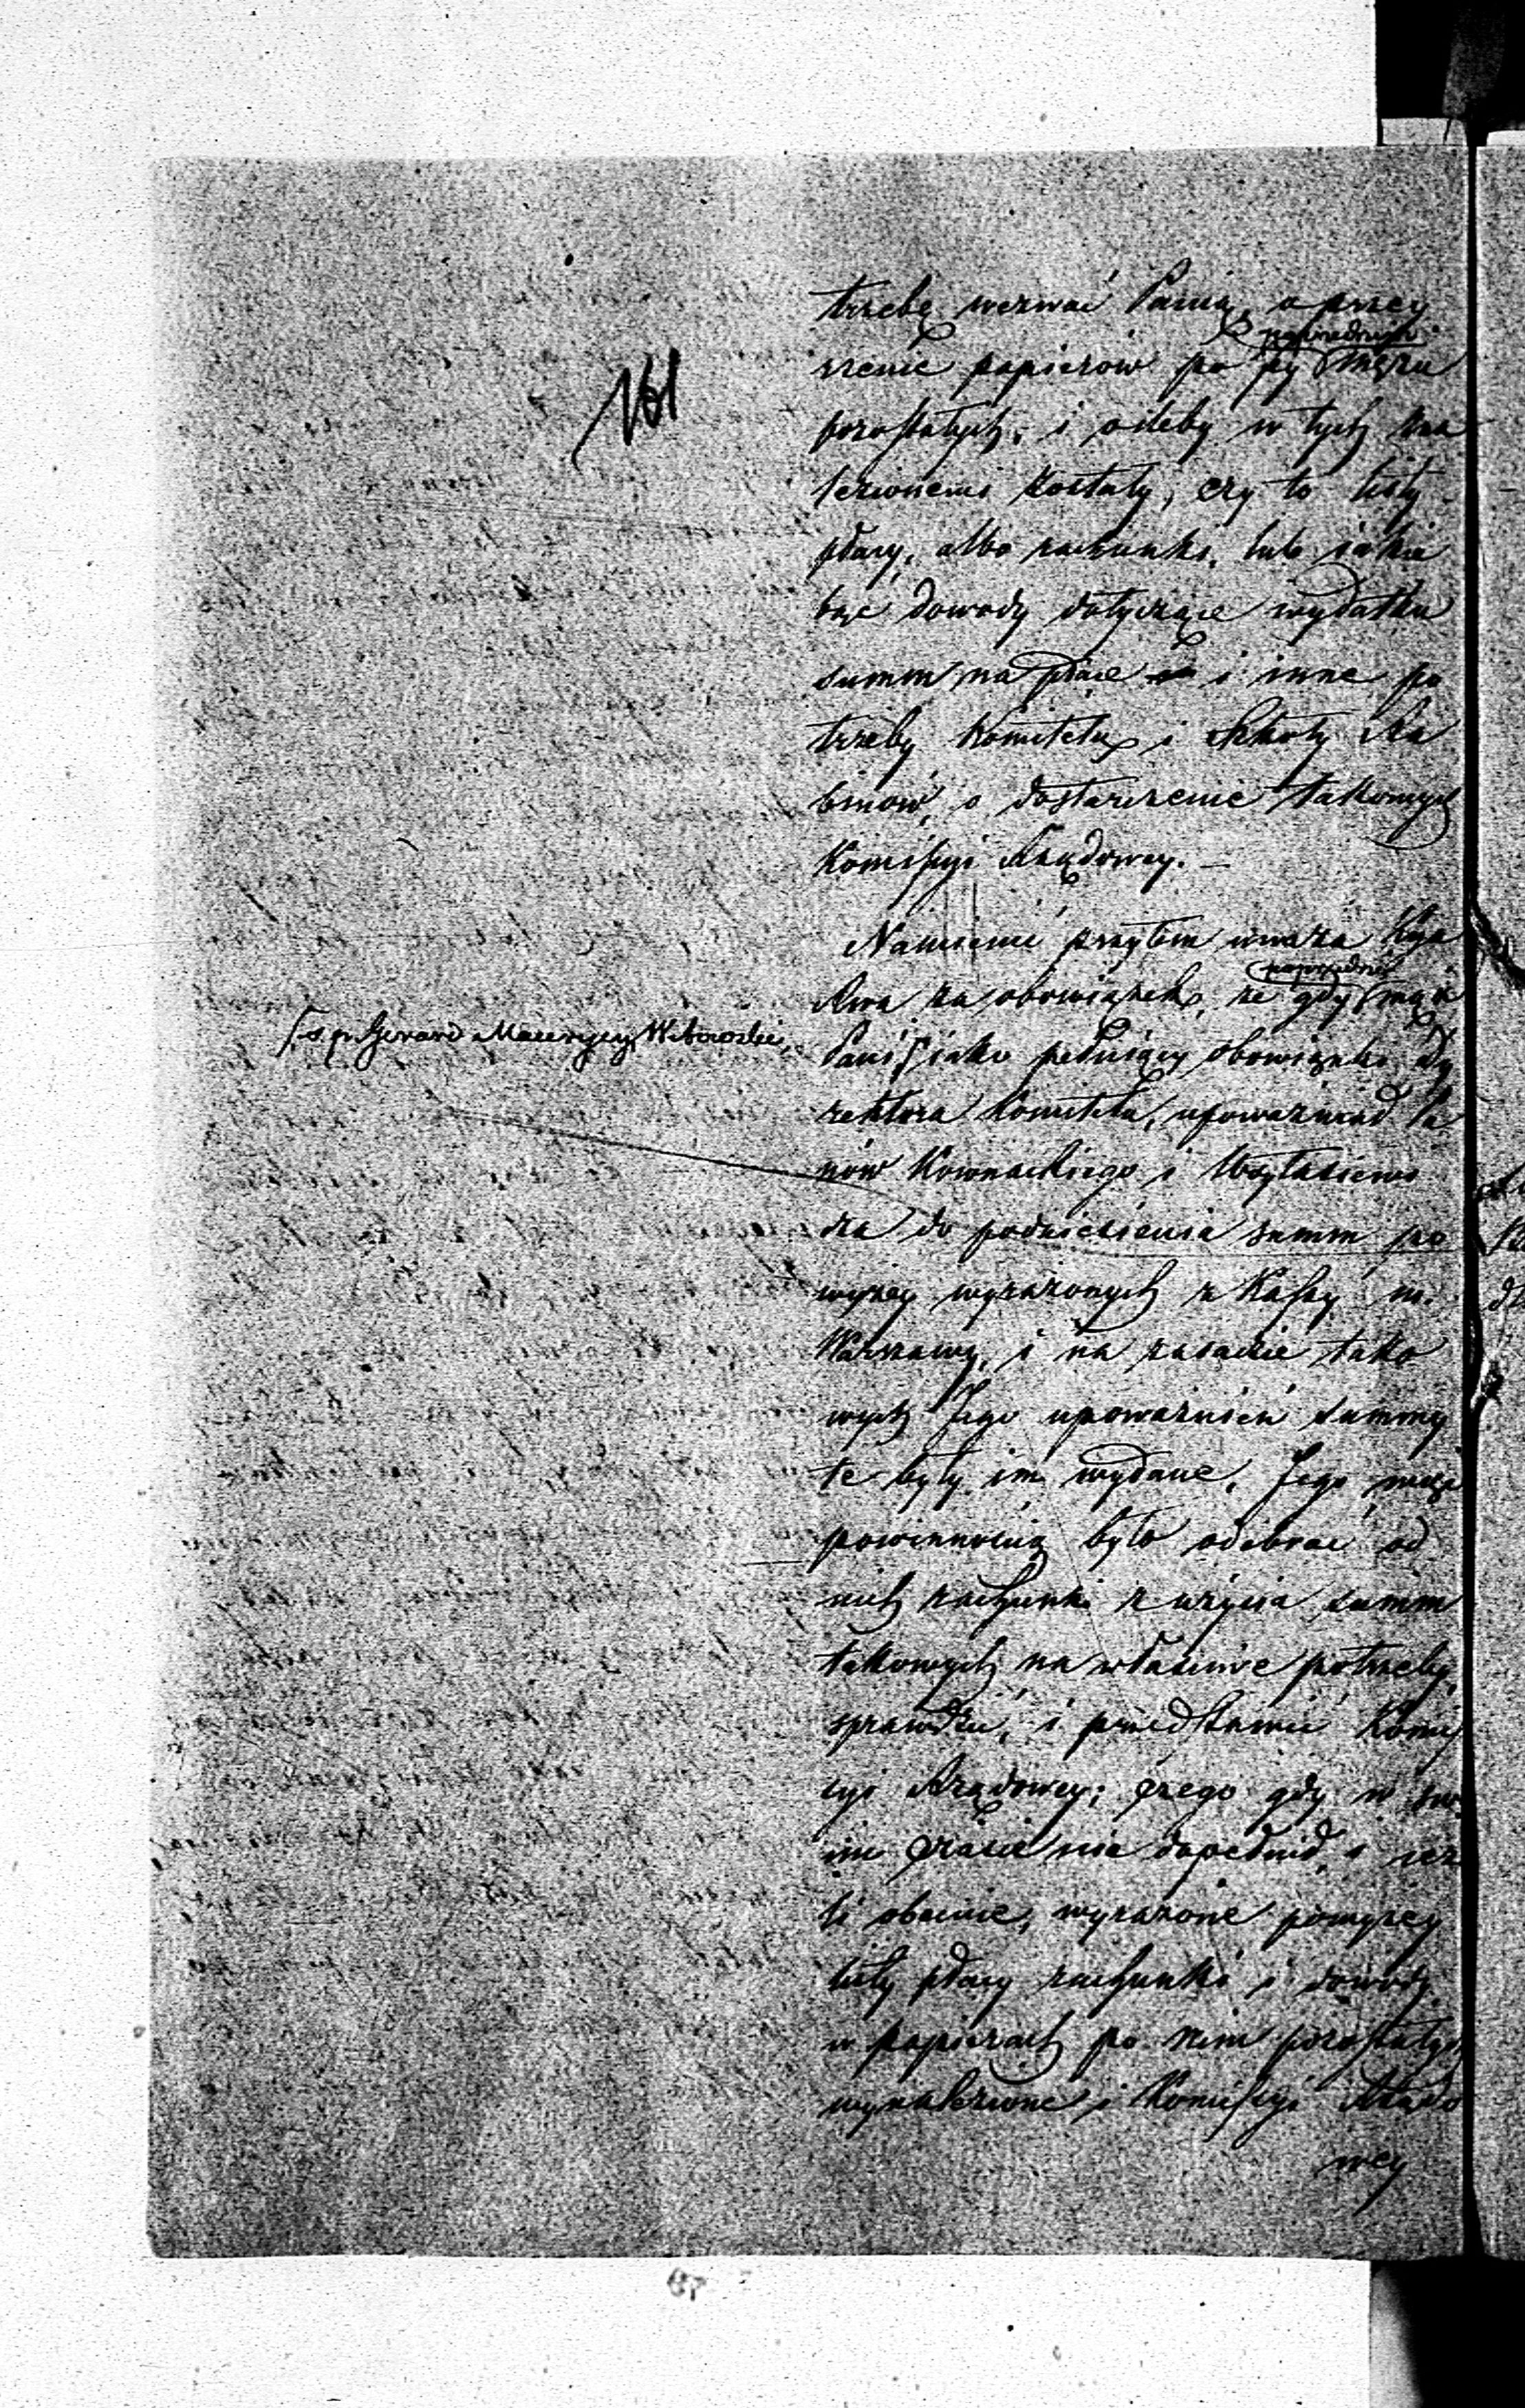 161
trzebę wezwać Panią, o przey
rzenie papierów po Jey poprzednim mężu
pozostałych, i ileby w tych zna
lezionemi zostały, czy to listy
płacy, albo rachunki, lub iakie
bąć dowody dotyczące wydatku
summ na płace i inne po
trzeby Komitetu i Szkoły Ra
binów, o dostarczenie takowych
Komissyi Rządowey. —
Namienić przytem uważa Kssa
Rwa za obowiązek, że gdy poprzedni mąż
Pani [ iako pełniący obowiązki Dy
[ ś. p. Gerard Maurycy Witowski,
rektora Komitetu, upoważniał Pa
nów Kownackiego i
dza do podniesienia summ po
wyżey wyrażonych z Kassy m.
Warszawy, i na zasadzie tako
wych Jego upoważnień summy
te były im wydane, Jego więc
powinnością było odebrać od
nich rachunki z użycia summ
takowych na właściwe potrzeby,
sprawdzić, i przedstawić Komis
syi Rządowey; czego gdy w swo
im czasie nie dopełnił, i ież
li obecnie, wyrażone powyżey
listy płacy rachunki i dowody
w papierach po nim pozostałych
wynalezione i Komissyi Rządo
wey